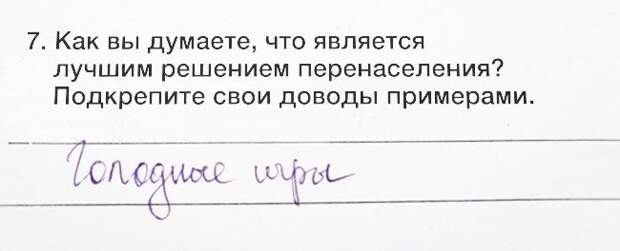 7. Как вы думаете, что является
лучшим решением перенаселения?
Подкрепите свои доводы примерами.
Голодные игры